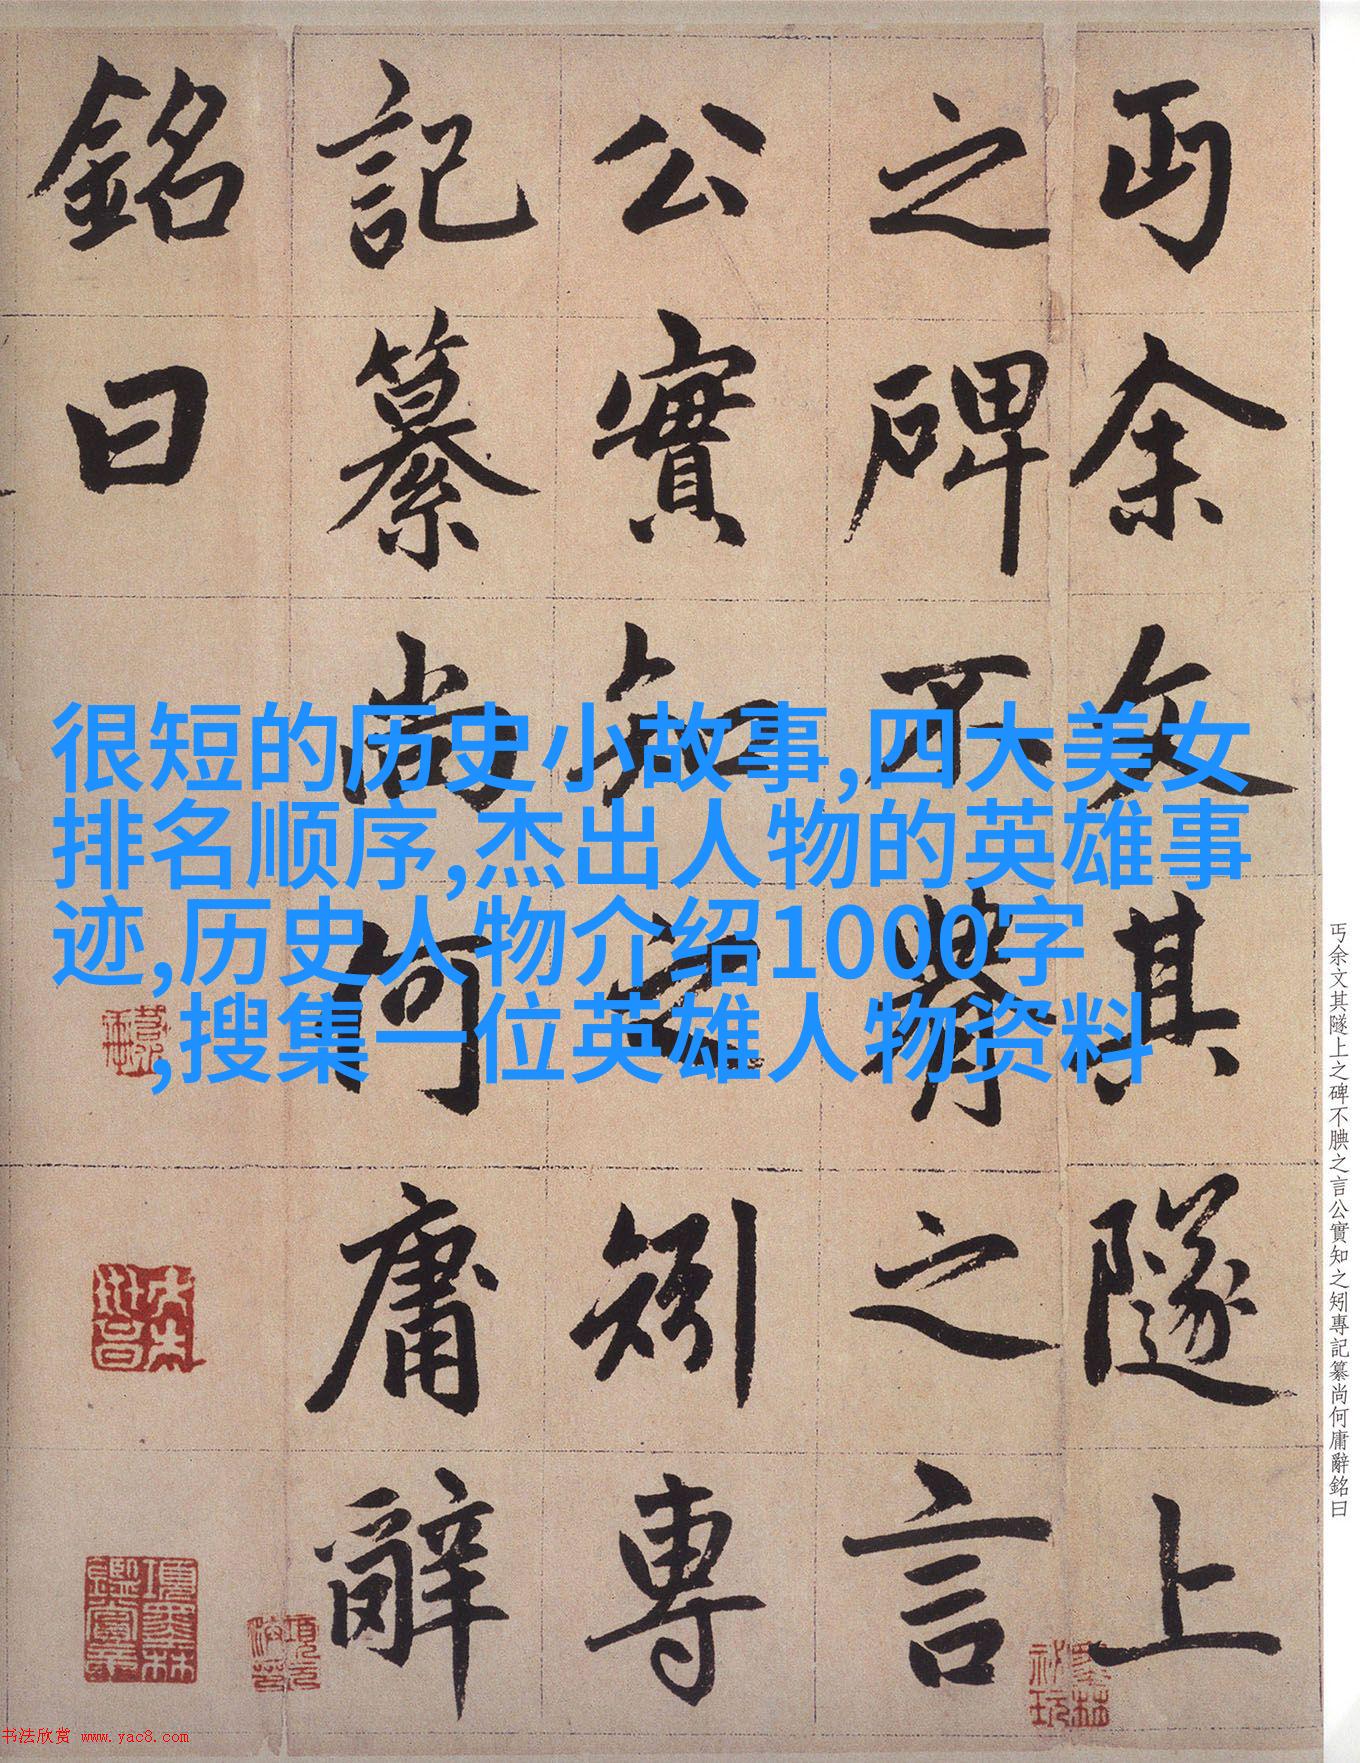 丐余文其隧上
之碑不腆之言
公實知之矧專
記纂尚何庸辭
銘曰
很短的历史小故事,四大美女
排名顺序,杰出人物的英雄事
迹,历史人物介绍1000字
,搜集一位英雄人物资料
丐余文其隧上之碑不腆之言公實知之矧專記纂尚何庸辭銘曰
項墨林
鑑賞章
书法欣赏 www.yac8.com